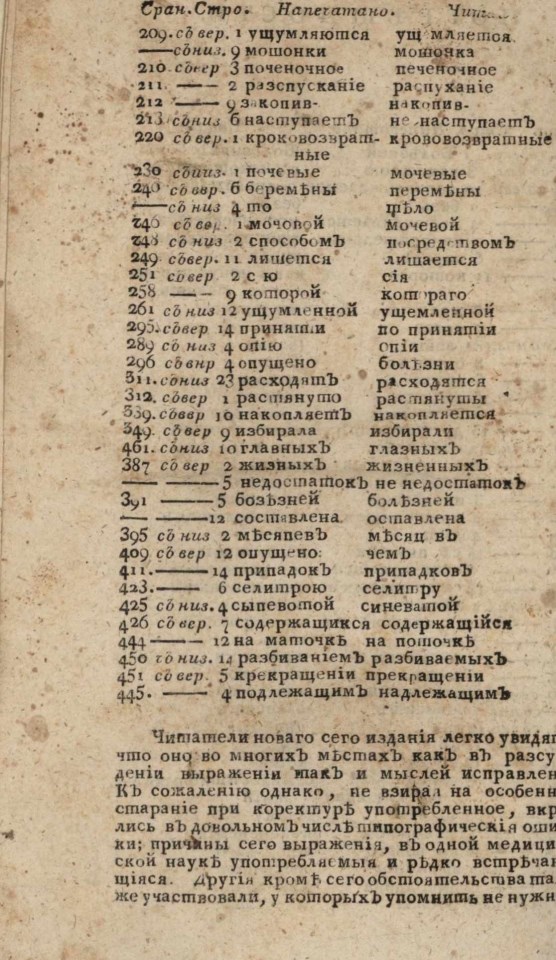 Стран. Стро. Напечатано.
209. съ вер. 1 ущумляются ущ мляется
— съ низ. 9 мошонки мошонка
210. съ вер 3 поченочное печеночное
211. —— 2 разспусканіе распуханіе
212 —— 9 закопив- накопив-
213 съ низ. 6 наступаетЪ не наступаетЪ
220 съ вер. 1 кроковозврат- крововозвратные
ные
230 съ низ. 1 почевые мочевые
240 съ вер. 6 беремѣны перемѣны
— съ низ 4 то тѣло
246 съ вер. 1 мочопой мочевой
248 съ низ 2 способомЪ посредствомЪ
249 съ вер. 11 лишется лишается
251 съ вер 2 с ю сія
258 —— 9 которой котораго
261 съ низ 12 ущумленной ущемленной
295. съ вер 14 приняти по принятіи
289 съ низ 4 опію опіи
296 съ внр 4 опущено болѣзни
311. съ низ 23 расходятЪ расходятся
312. съ вер 1 растянуто растянуты
339. съ ввр 10 накопляетЪ накопляется
349. съ вер 9 избирала избирали
461. съ низ 10 главныхЪ глазныхЪ
387 съ вер 2 жизныхЪ жизненныхЪ
— —— 5 недостатокЪ не недостатокЪ
391 —— 5 бозѣзней болѣзней
— —— 12 составлена оставлена
395 съ низ 2 мѣсяпевЪ мѣсяц вЪ
409 съ вер 12 опущено: чемЪ
411. —— 14 припадокЪ припадковЪ
423. —— 6 селитрою селитру
425 съ низ. 4 сыпеватой синеватой
426 съ вер. 7 содержащикся содержащійся
444 —— 12 на маточкѣ на поточкѣ
450 съ низ. 14 разбиваніемЪ разбиваемыхЪ
451 съ вер. 5 крекращеніи прекращеніи
445. —— 4 подлежащимЪ надлежащимЪ
Читатели новаго сего изданія легко увидят
что оно во многихЪ мѣстахЪ какЪ вЪ разсу
деніи выраженіи такЪ и мыслей исправлен
КЪ сожалѣнію однако, не взирая на особенн
стараніе при коректурѣ употребленное, вкр
лись вЪ довольномЪ числѣ типографическія оши
ки; причины сего выраженія, вЪ одной медици
ской наукѣ употребляемыя и рѣдко встрѣчаю
щіяся. Другія кромѣ сего обстоятельства та
же участвовали, у которыхЪ упомнить не нужн